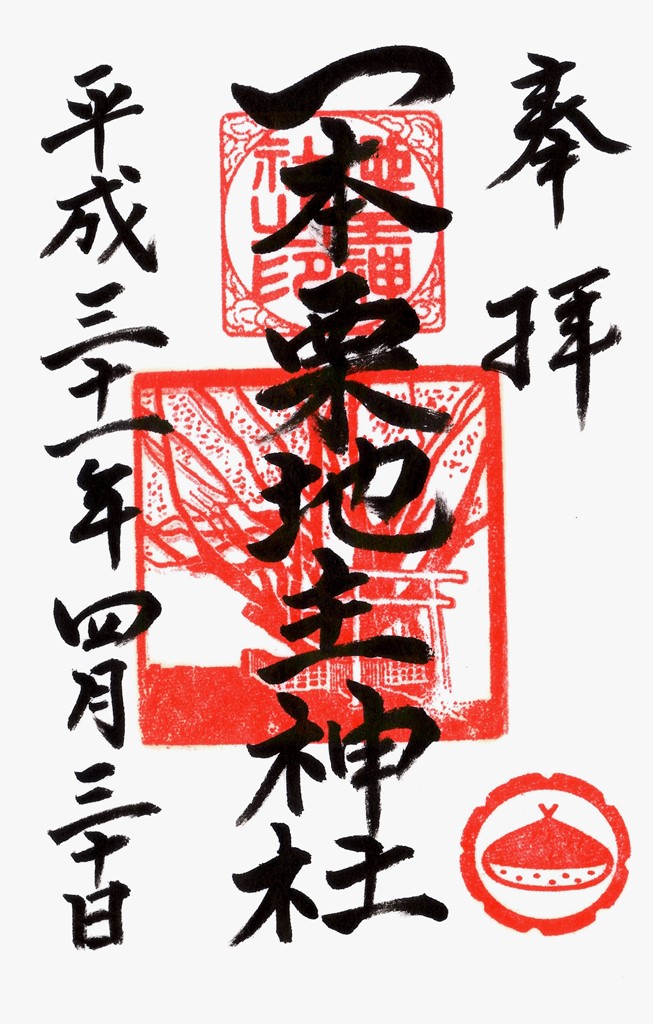 奉拝
一本栗地主神社
平成三十一年四月三十日
地主神
社之印